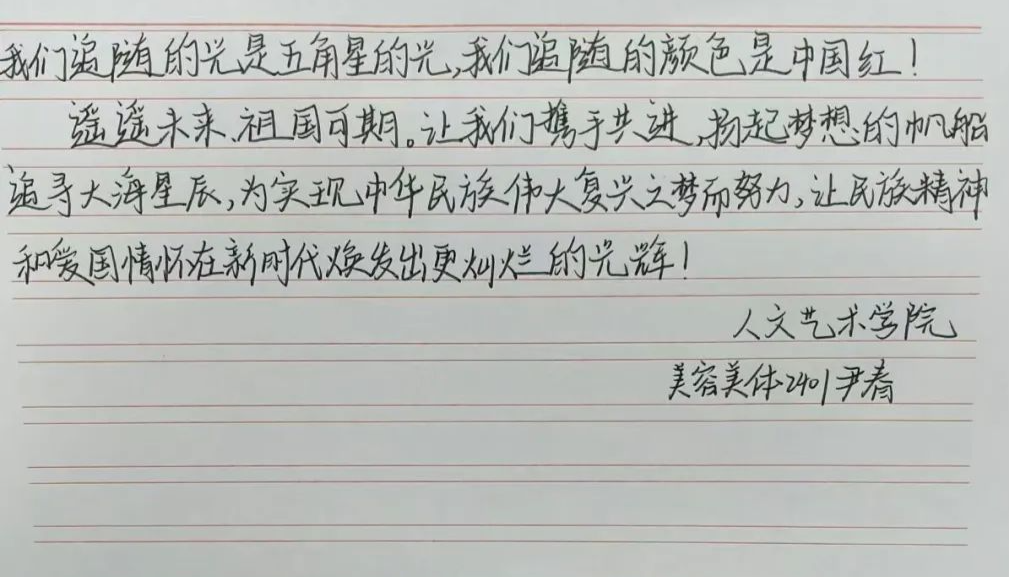 我们追随的光是五角星的光,我们追随的颜色是中国红!
遥遥未来,祖国可期。让我们携手共进,扬起梦想的帆船
追寻大海星辰,为实现中华民族伟大复兴之梦而努力,让民族精神
和爱国情怀在新时代焕发出更灿烂的光辉!
人文艺术学院
美容美体2401尹春